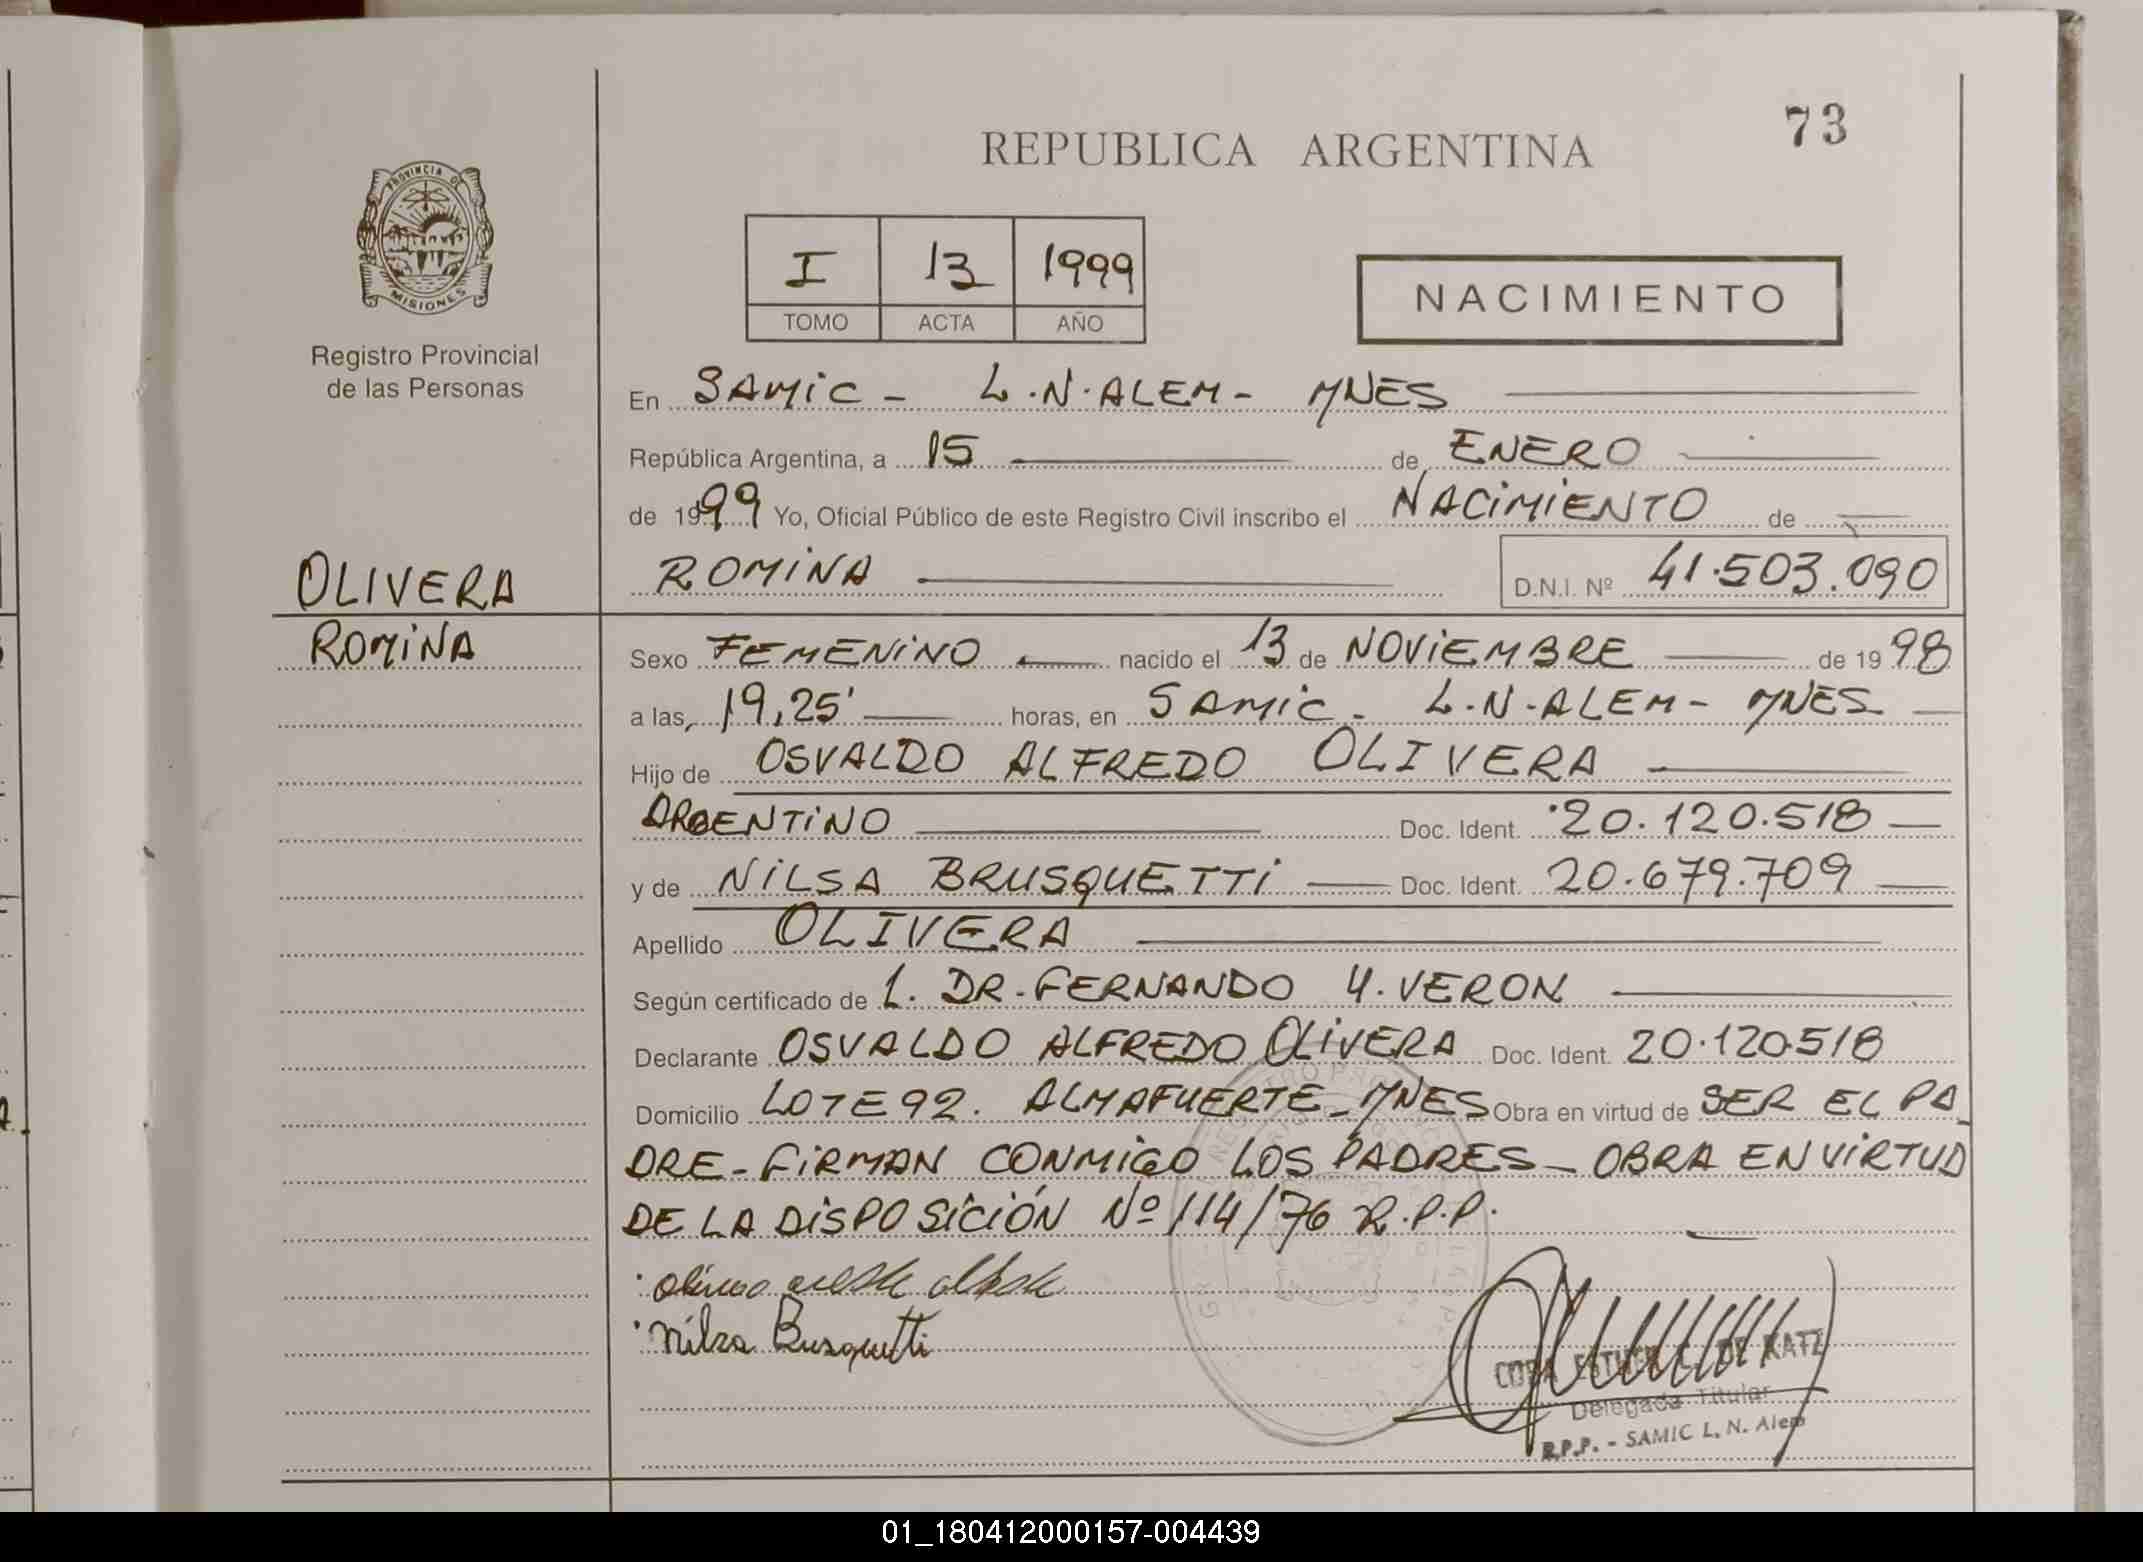 73
REPUBLICA ARGENTINA
PROVINCIA DE
MISIONES
Registro Provincial
de las Personas
I 13 1999
TOMO ACTA AÑO
NACIMIENTO
En SAMIC - L.N.ALEM - MNES
República Argentina, a 15 de ENERO
de 1999 Yo, Oficial Público de este Registro Civil inscribo el NACIMIENTO de
ROMINA D.N.I. Nº 41.503.090
OLIVERA
ROMINA
Sexo FEMENINO nacido el 13 de NOVIEMBRE de 1998
a las, 19,25' horas, en SAMIC - L.N.ALEM - MNES
Hijo de OSVALDO ALFREDO OLIVERA
ARGENTINO Doc. Ident. 20.120.518
y de NILSA BRUSQUETTI Doc. Ident. 20.679.709
Apellido OLIVERA
Según certificado de L. DR. FERNANDO H. VERON
Declarante OSVALDO ALFREDO OLIVERA Doc. Ident. 20.120.518
Domicilio LOTE 92. ALMAFUERTE - MNES Obra en virtud de SER EL PA-
DRE - FIRMAN CONMIGO LOS PADRES - OBRA EN VIRTUD
DE LA DISPOSICIÓN Nº 114/76 R.P.P.
Nilsa Brusquetti
DE KATZ
Delegada Titular
R.P.P. - SAMIC L. N. Alem
01_180412000157-004439